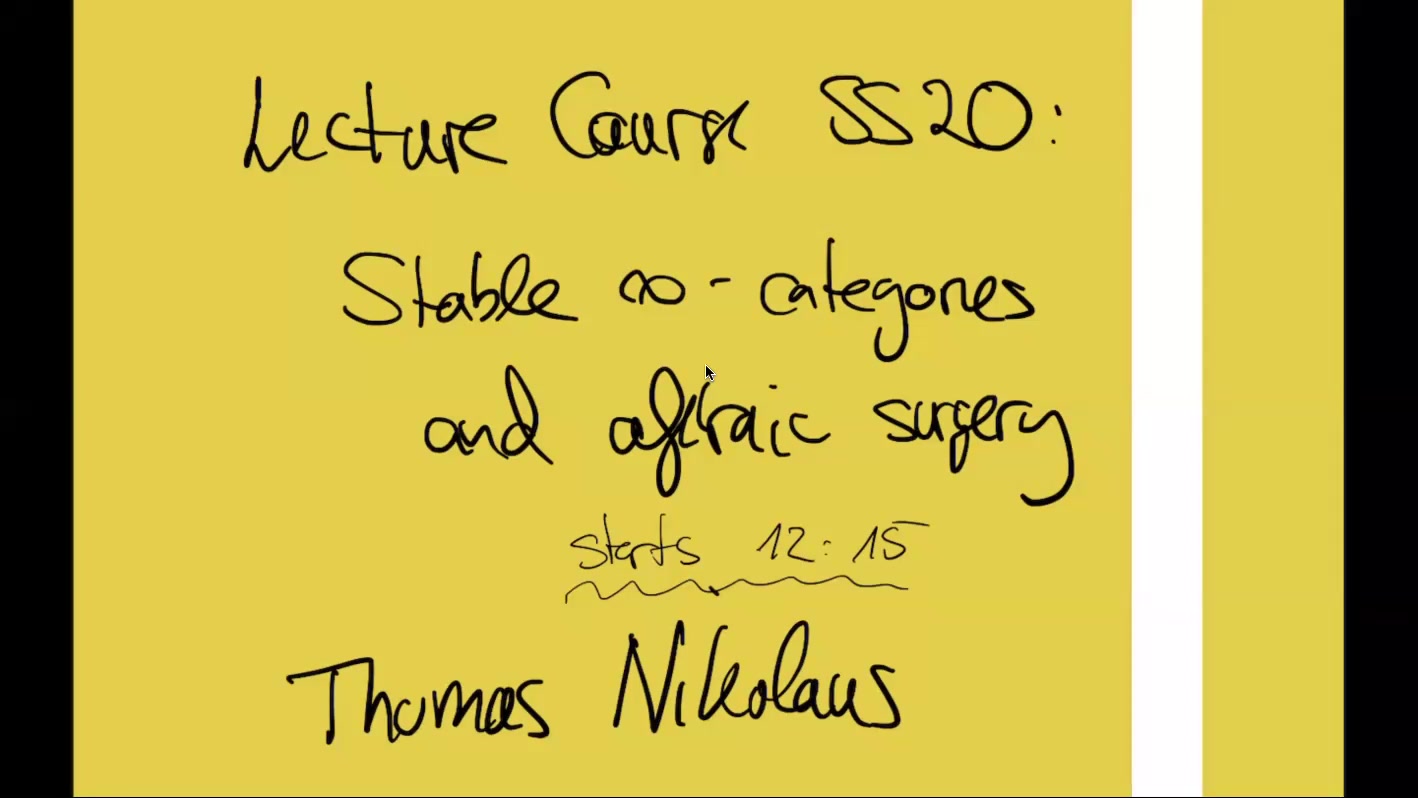 Lecture Course SS20:
Stable ∞-categories
and algebraic surgery
starts 12:15
Thomas Nikolaus